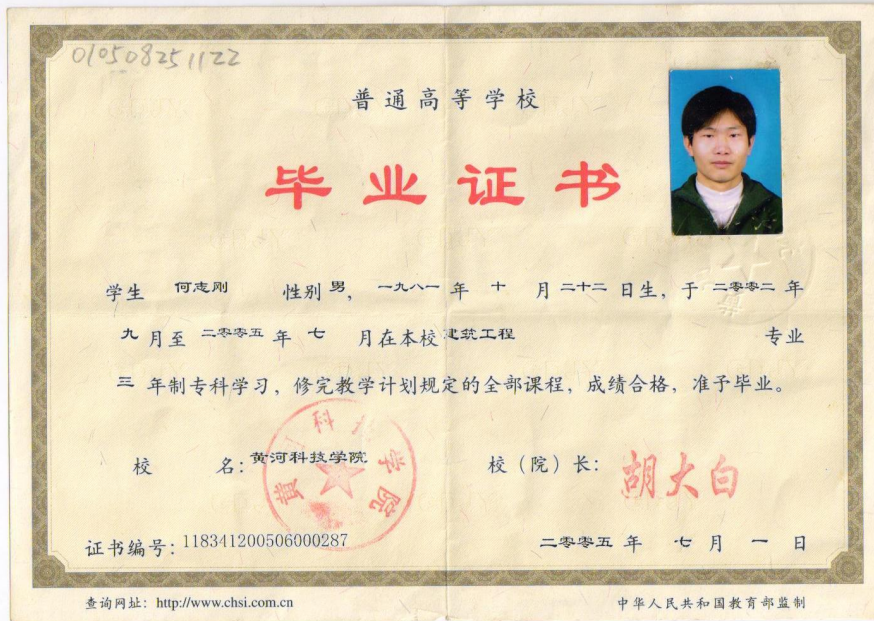 010508251122
普通高等学校
毕业证书
学生 何志刚 性别 男, 一九八一 年 十 月 二十二 日生, 于 二零零二 年
九 月至 二零零五 年 七 月在本校 建筑工程 专业
三 年制专科学习, 修完教学计划规定的全部课程, 成绩合格, 准予毕业。
校 名: 黄河科技学院 校(院)长: 胡大白
黄河科技学院
证书编号: 118341200506000287 二零零五 年 七 月 一 日
查询网址: http://www.chsi.com.cn 中华人民共和国教育部监制